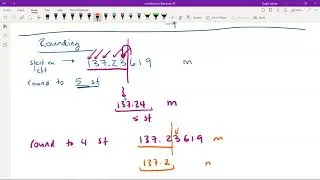 Rounding
start on left
137.23619 m
round to 5 sf
137.24 m
5 sf
round to 4 sf
137.23619 m
137.2 m